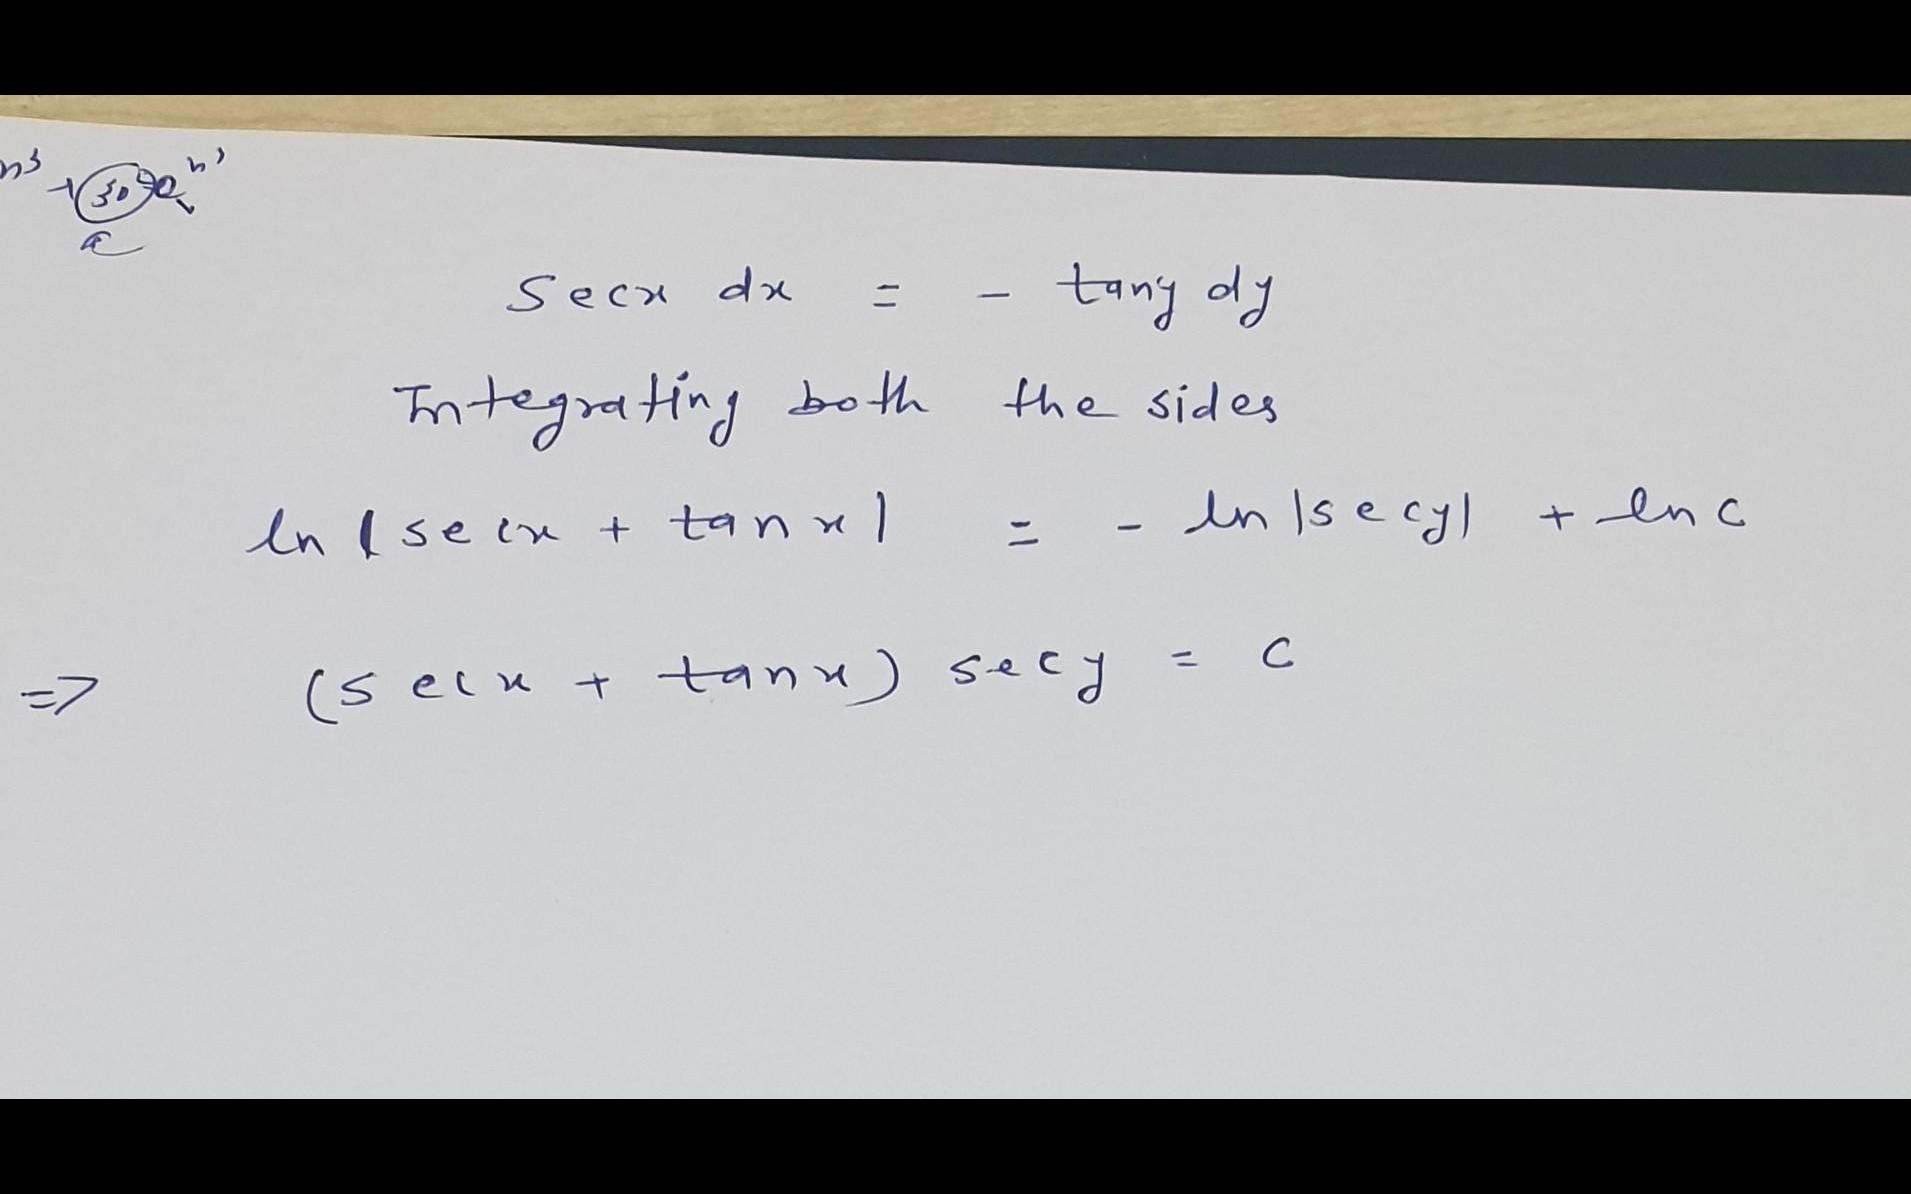 secx dx = - tany dy
Integrating both the sides
ln |secx + tanx| = - ln |secy| + ln c
=> (secx + tanx) secy = c